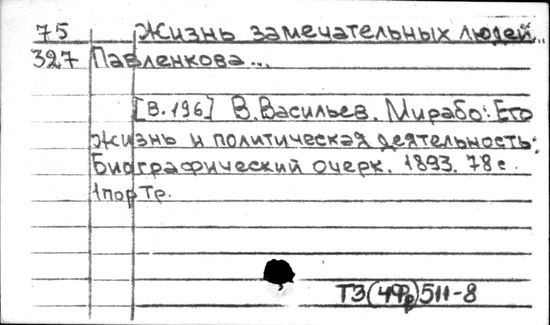 75 Жизнь замечательных людей...
327 Павленкова...
[В.196] В.Васильев. Мирабо: Его
жизнь и политическая деятельность:
Биографический очерк. 1893. 78 с.
1 портр.
Т3(4Фр)511-8